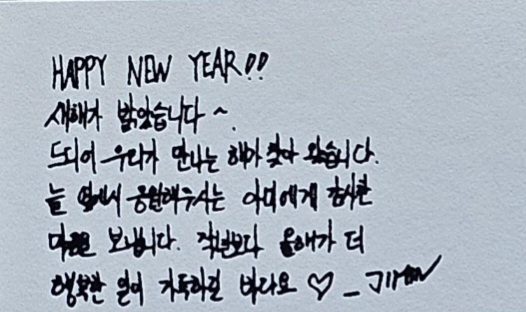 HAPPY NEW YEAR!!
새해가 밝았습니다 ~.
드디어 우리가 만나는 해가 찾아 왔습니다.
늘 옆에서 응원해주시는 아미에게 감사한
마음을 보냅니다. 작년보다 올해가 더
행복한 일이 가득하길 바라요 ♡ - JIMIN